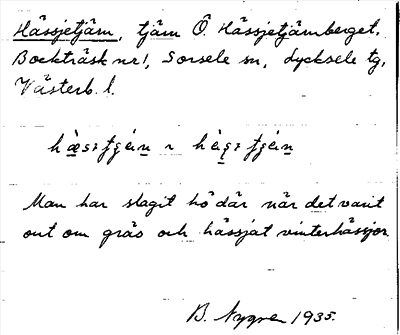 Hässjetjärn, tjärn Ö Hässjetjärnberget,
Bockträsk nr 1, Sorsele sn, Lycksele tg,
Västerb. l.
Man har slagit hö där när det varit
ont om gräs och hässjat vinterhässjor.
B. Nygren 1935.